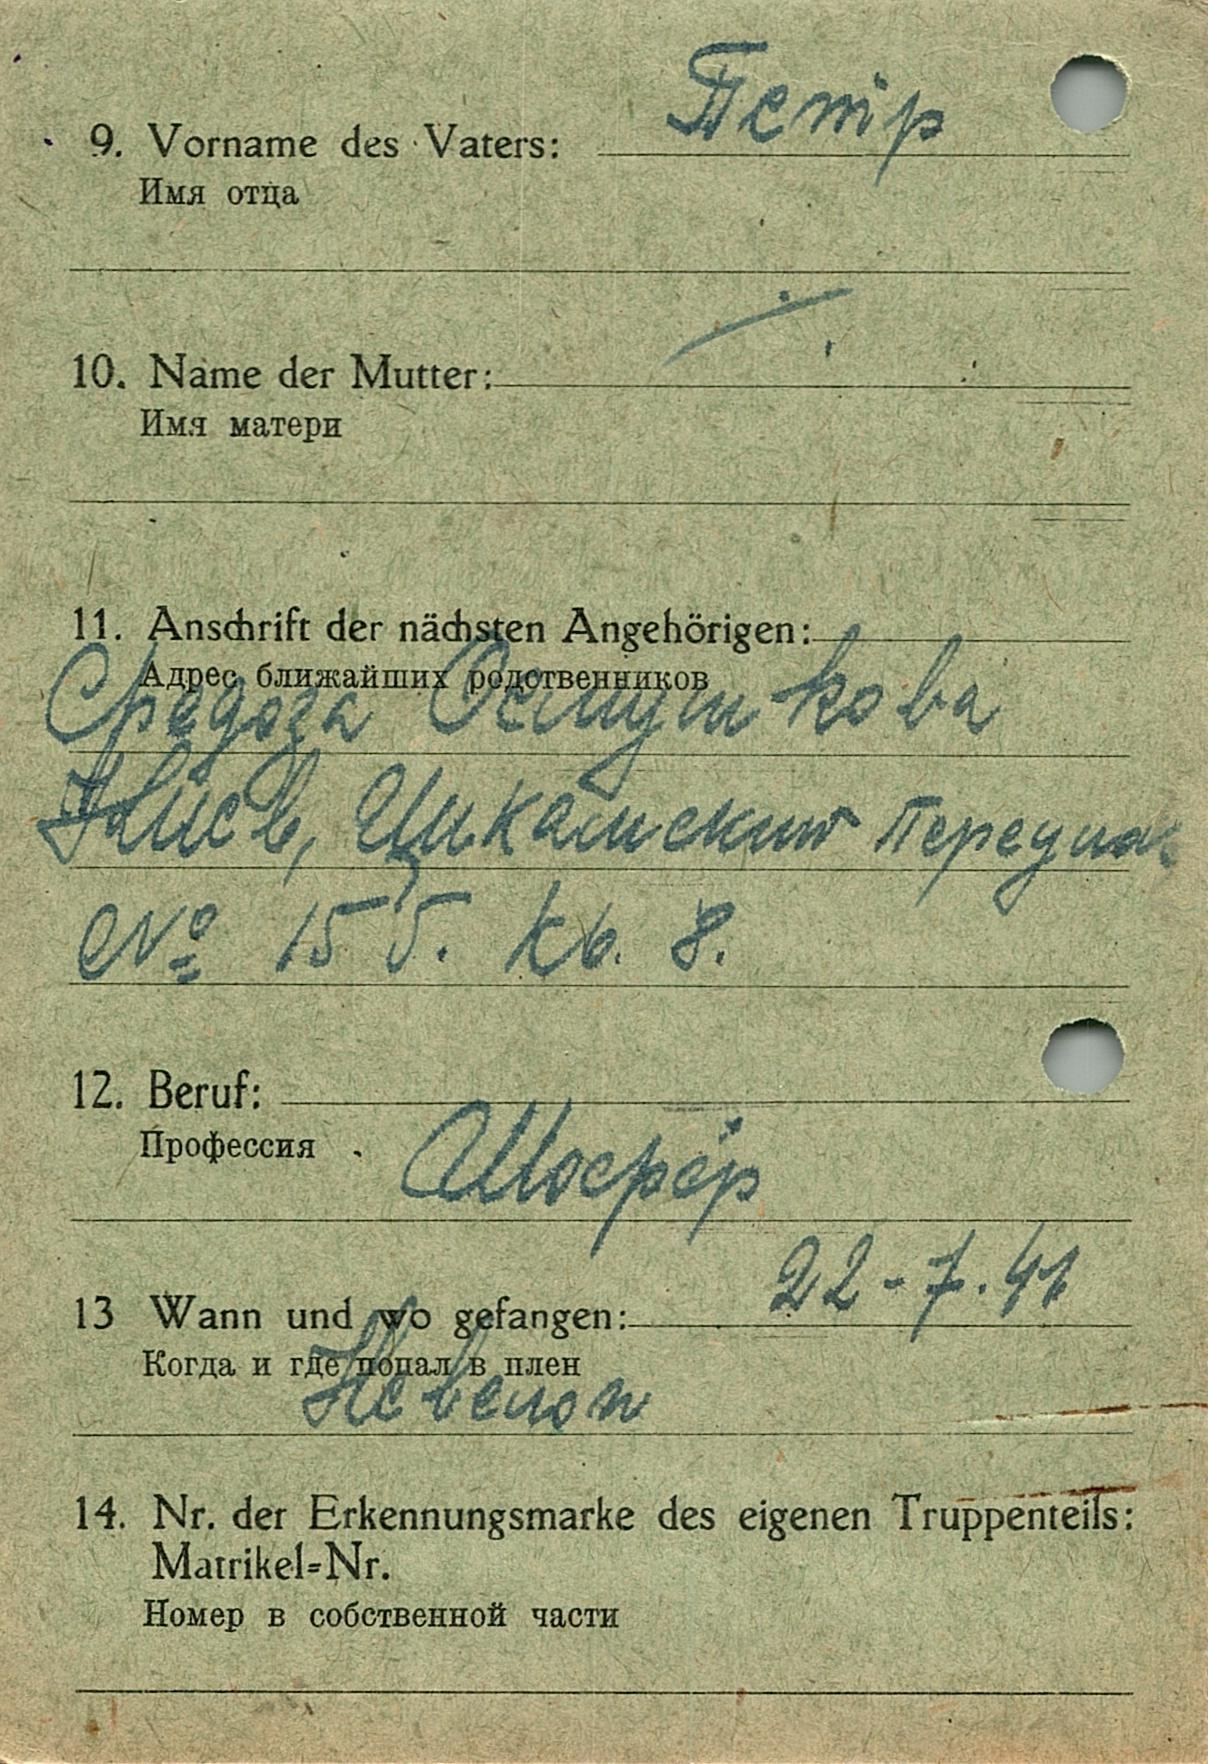 Петр
9. Vorname des Vaters:
Имя отца
10. Name der Mutter:
Имя матери
11. Anschrift der nächsten Angehörigen:
Адрес ближайших родственников
Киев,
№ 15 кв. 8.
12. Beruf:
Профессия
Шофёр
22-7.41
13 Wann und wo gefangen:
Когда и где попал в плен
14. Nr. der Erkennungsmarke des eigenen Truppenteils:
Matrikel=Nr.
Номер в собственной части